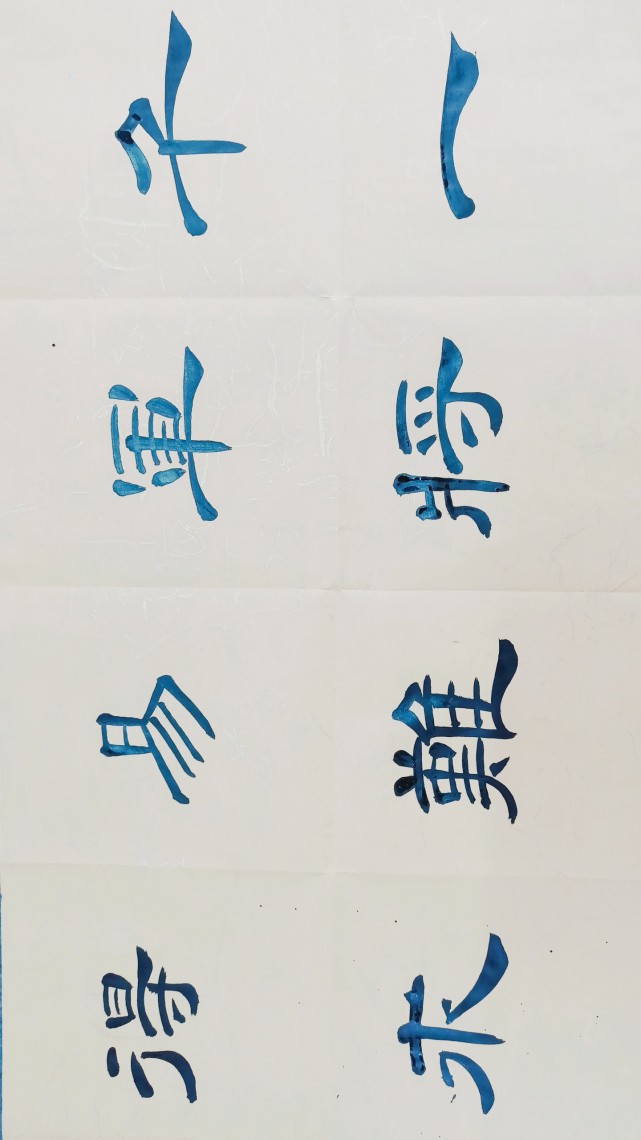 千軍易得
一將難求